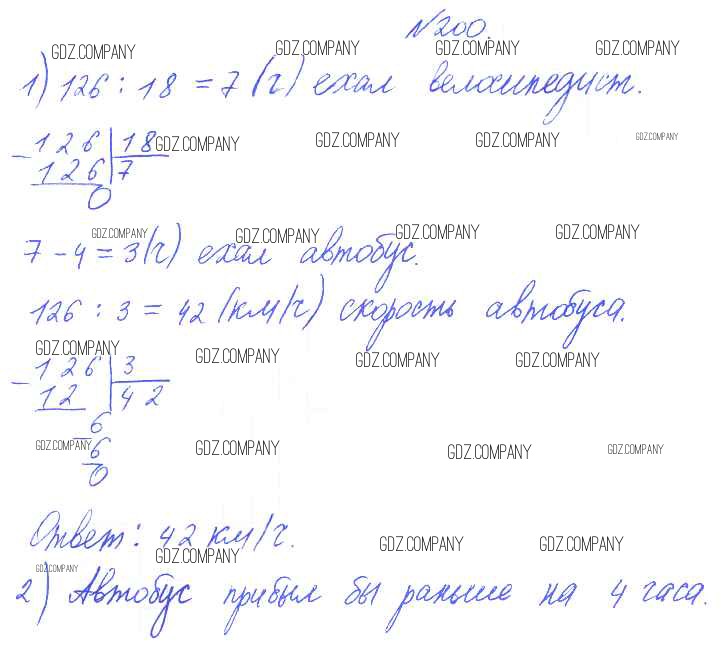 №200.
GDZ.COMPANY GDZ.COMPANY GDZ.COMPANY GDZ.COMPANY
1) 126 : 18 = 7 (ч) ехал велосипедист.
126 18 GDZ.COMPANY GDZ.COMPANY GDZ.COMPANY GDZ.COMPANY
- 126 7
0
GDZ.COMPANY GDZ.COMPANY GDZ.COMPANY GDZ.COMPANY
7 - 4 = 3 (ч) ехал автобус.
126 : 3 = 42 (км/ч) скорость автобуса.
GDZ.COMPANY GDZ.COMPANY GDZ.COMPANY GDZ.COMPANY
- 126 3
12 42
6
GDZ.COMPANY - 6 GDZ.COMPANY GDZ.COMPANY GDZ.COMPANY
0
Ответ: 42 км/ч.
GDZ.COMPANY GDZ.COMPANY GDZ.COMPANY
GDZ.COMPANY
2) Автобус прибыл бы раньше на 4 часа.